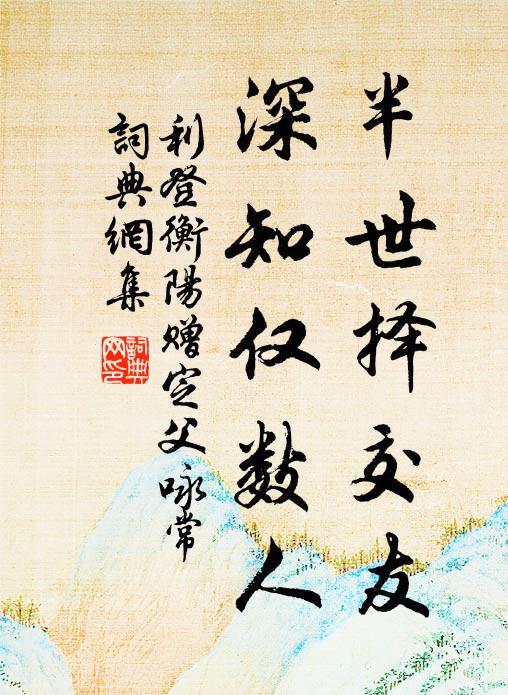 半世择交友
深知仅数人
利登衡陽赠定父咏常
詞典網集
詞典网印